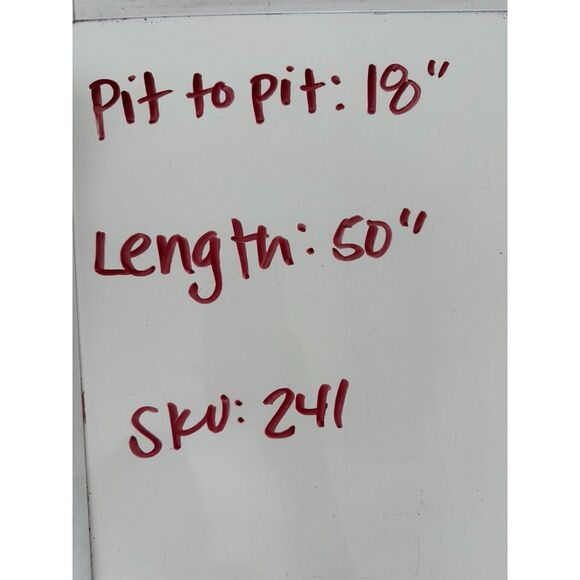 Pit to pit: 18"
Length: 50"
SKU: 241